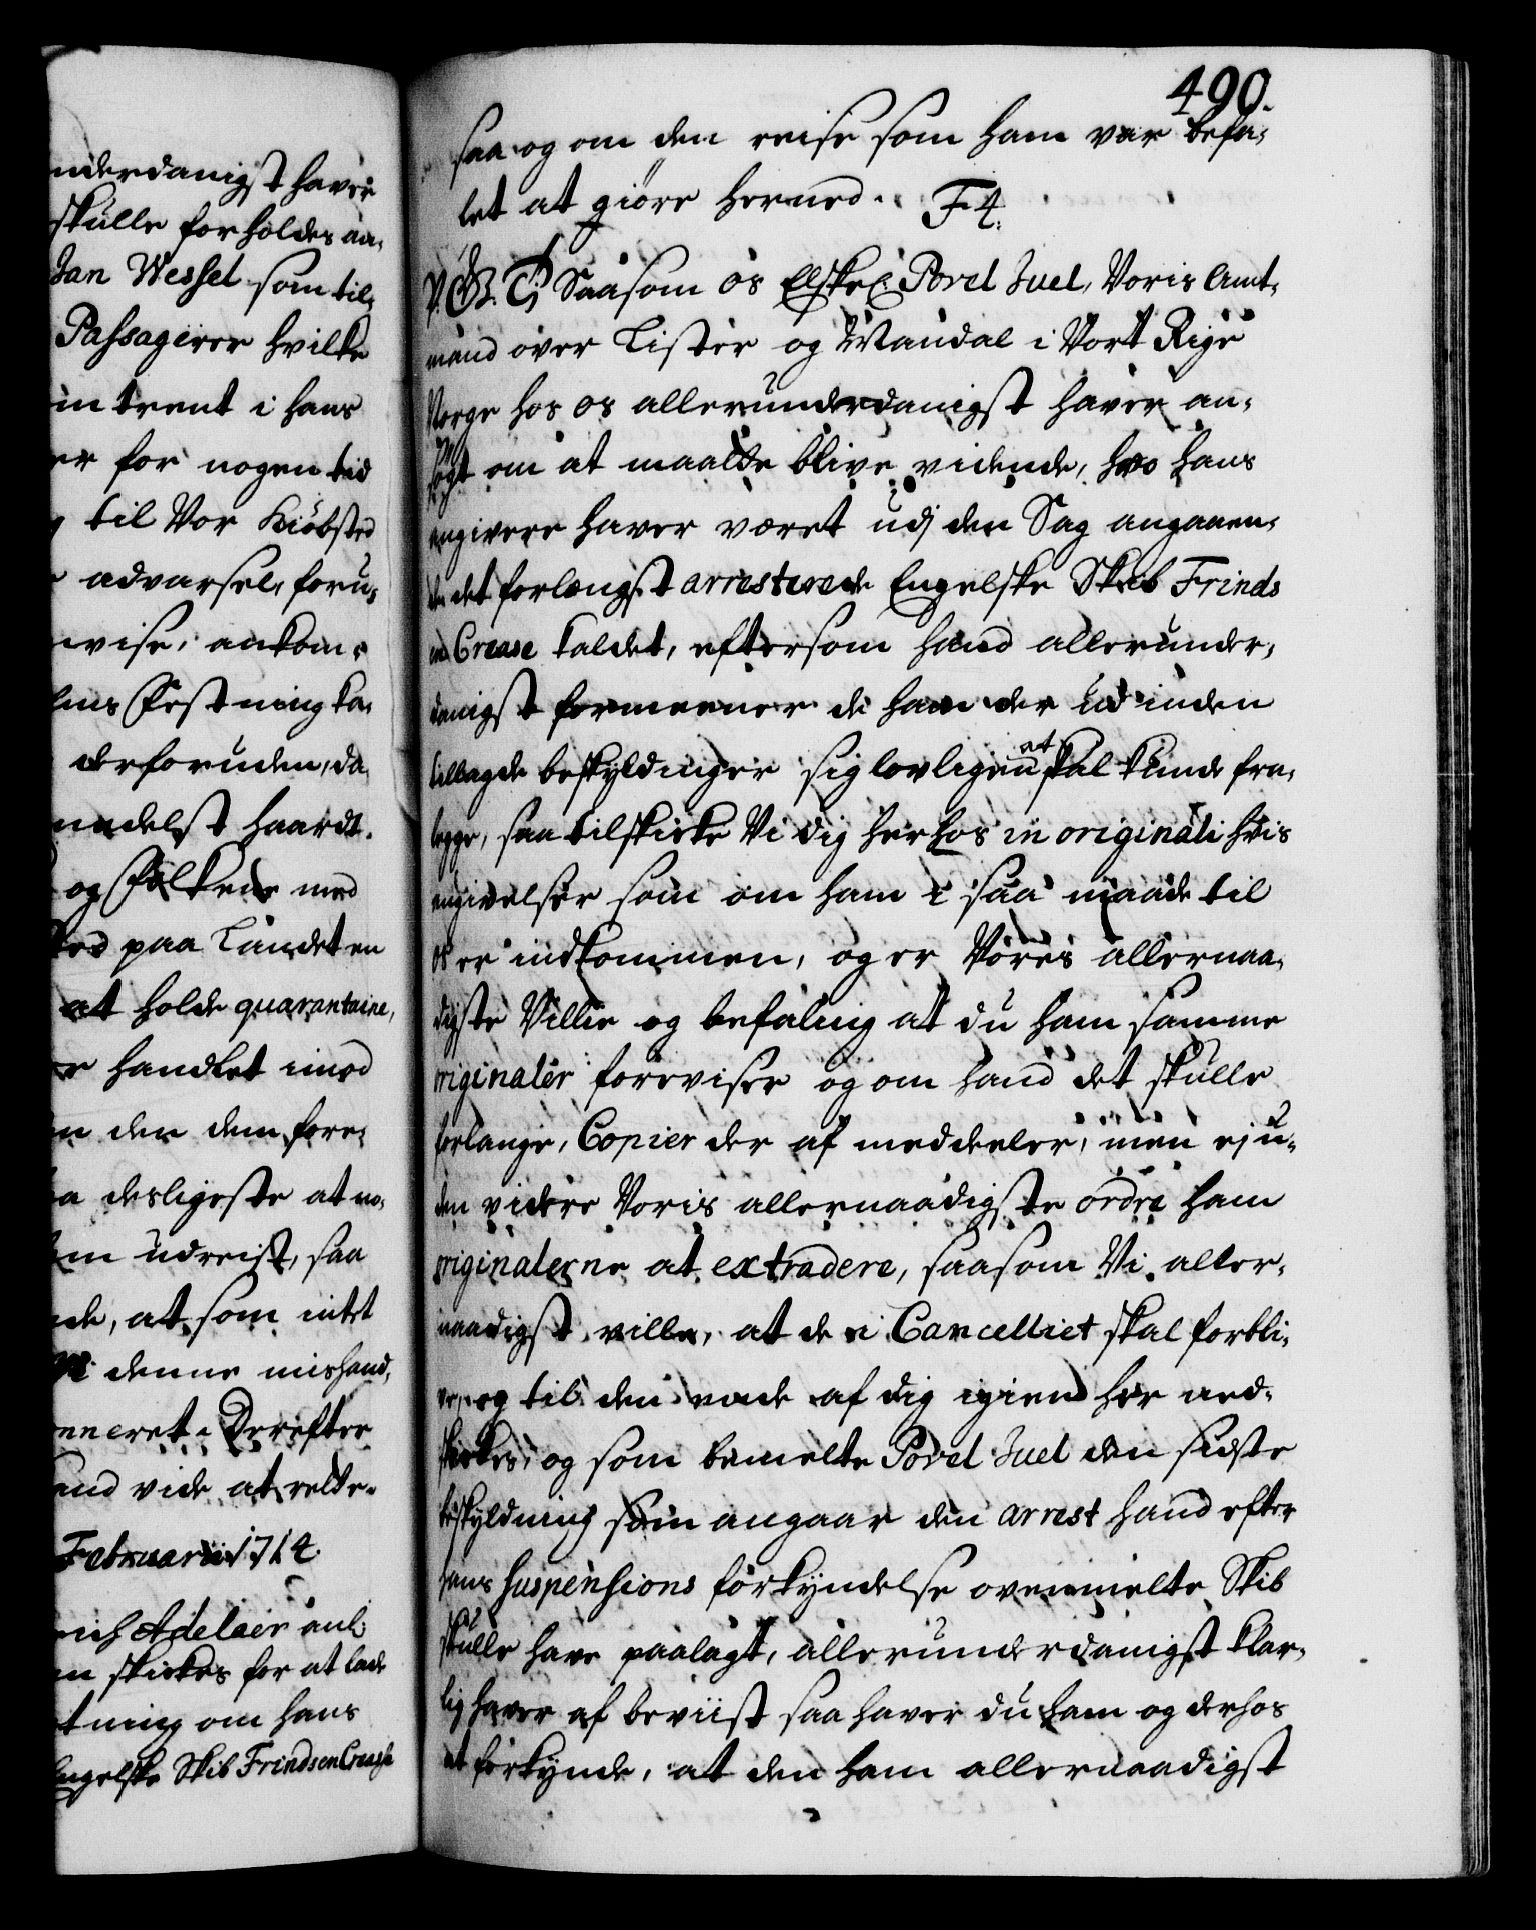 nderdanigst haver
skulle forholdes an-
Jan Wessel som til-
Passagerer hvilke
in trent i hans
er for nogen tid
til Vor Kiöbsted
advarsel, foru-
vise, ankom-
ens Festning ka-
derforuden, da
medelst haardt.
og Folkene med
paa Landet en
at holde quarantaine,
handlet imod
den dem fore-
a desligeste at no-
udreist, saa
de, at som intet
denne mishand-
nneret. Derefter
and vide at rette-
Februarii 1714.
rich Adelaer anl.
skickes for at lade
tning om hans
Engelske Skib Frindsen Crease
490.
saa og om den reise som ham var befa-
let at giöre herned. F4.
V.G.B. T: Saasom os Elskel: Povel Juel, Voris Amt-
mand over Lister og Mandal i Vort Rige
Norge hos os allerunderdanigst haver an-
sögt om at maatte blive vidende, hvo hans
angivere haver været udj den Sag angaaen-
de det forlængst arresterede Engelske Skib Frinds
en Crease kaldet, eftersom hand allerunder-
danigst formeener de ham der ud inden
tillagde beskyldinger sig lovligen at skal kunde fra-
legge, saa tilskicke Vi dig herhos in originali hvis
angivelser som om ham i saa maade til
os er indkommen, og er Vores allernaa-
digste Villie og befaling at du ham samme
originaler foreviser og om hand det skulle
forlange, Copier der af meddeeler, men ej u-
den videre Voris allernaadigste ordre ham
originalerne at extradere, saasom Vi aller-
naadigst ville, at de i Cancelliet skal forbli-
ve, og til den ende af dig igien her ned-
skickes, og som bemelte Povel Juel den sidste
beskyldning som angaar den arrest hand efter
hans suspensions forkyndelse ovenmelte Skib
skulle have paalagt, allerunderdanigst klar-
lig haver af beviist saa haver du ham og derhos
at forkynde, at den ham allernaadigst